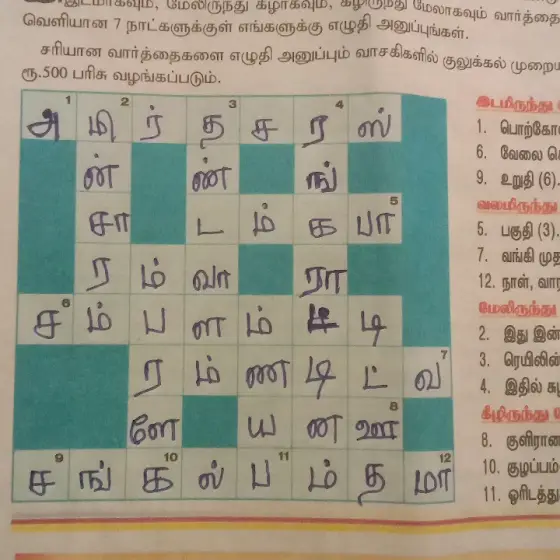 இடமாகவும், மேலிருந்து கீழாகவும், கீழிருந்து மேலாகவும் வார்த்தை
வெளியான 7 நாட்களுக்குள் எங்களுக்கு எழுதி அனுப்புங்கள்.
சரியான வார்த்தைகளை எழுதி அனுப்பும் வாசகிகளில் குலுக்கல் முறைய
ரூ.500 பரிசு வழங்கப்படும்.
1 2 3 4
அ மி ர் த ச ர ஸ்
ன் ண் ங்
5
சா ட ம் க பா
ர ம் வா ரா
6
ச ம் ப ள ம் ட் டி
7
ர ம் ண டி ட் வ
8
ளே ய ன ஊ
9 10 11 12
ச ங் க ல் ப ம் த மா
இடமிருந்து
1. பொற்கோ
6. வேலை செ
9. உறுதி (6).
வலமிருந்து
5. பகுதி (3).
7. வங்கி முத
12. நாள், வார
மேலிருந்து
2. இது இன்
3. ரெயிலின்
4. இதில் சு
கீழிருந்து
8. குளிரான
10. குழப்பம்
11. ஓரிடத்து